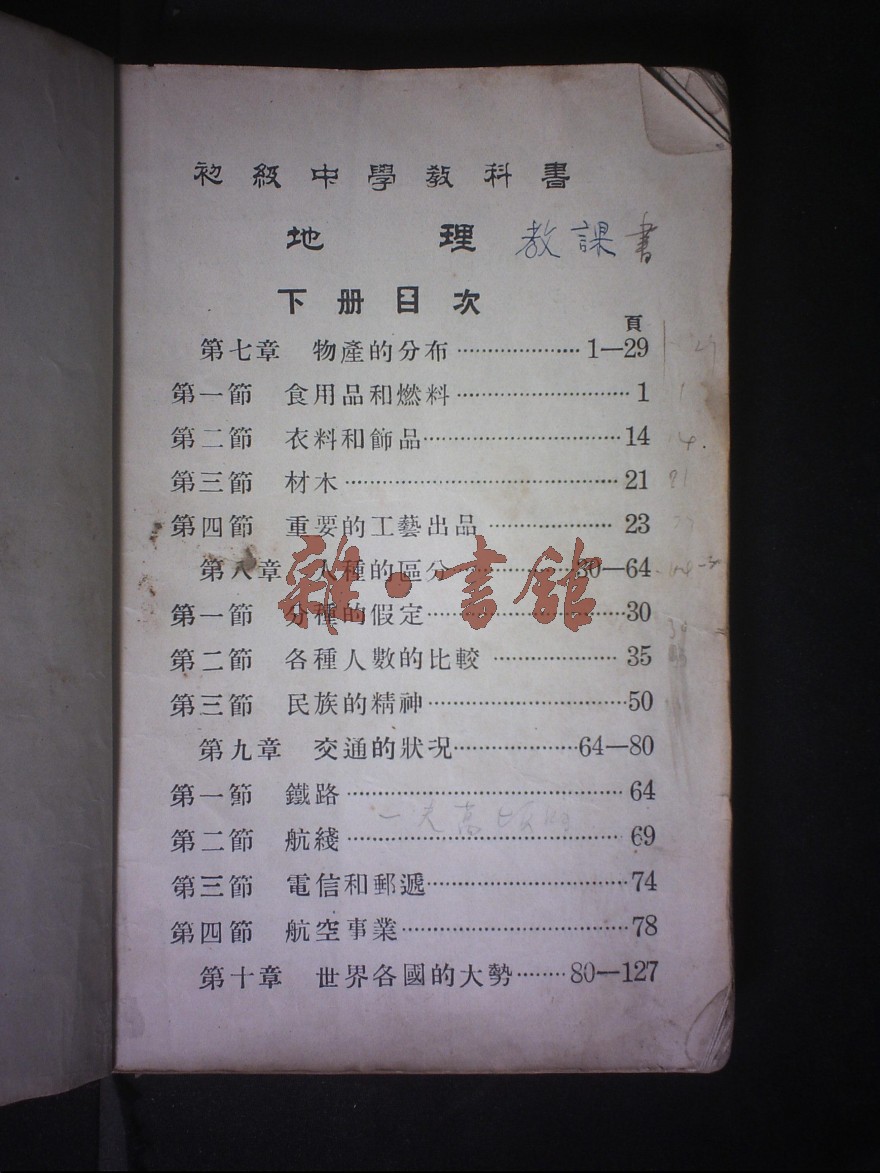 初級中學教科書
地理 教課書
下册目次
頁
第七章 物產的分布…………………1—29
第一節 食用品和燃料…………………………1
第二節 衣料和飾品……………………………14
第三節 材木………………………………………21
第四節 重要的工藝出品…………………23
第八章 人種的區分…………………30—64
第一節 分種的假定……………………………30
第二節 各種人數的比較…………………35
第三節 民族的精神……………………………50
第九章 交通的狀況…………………64—80
第一節 鐵路………………………………………64
第二節 航綫………………………………………69
第三節 電信和郵遞……………………………74
第四節 航空事業…………………………………78
第十章 世界各國的大勢………80—127
雜·書館